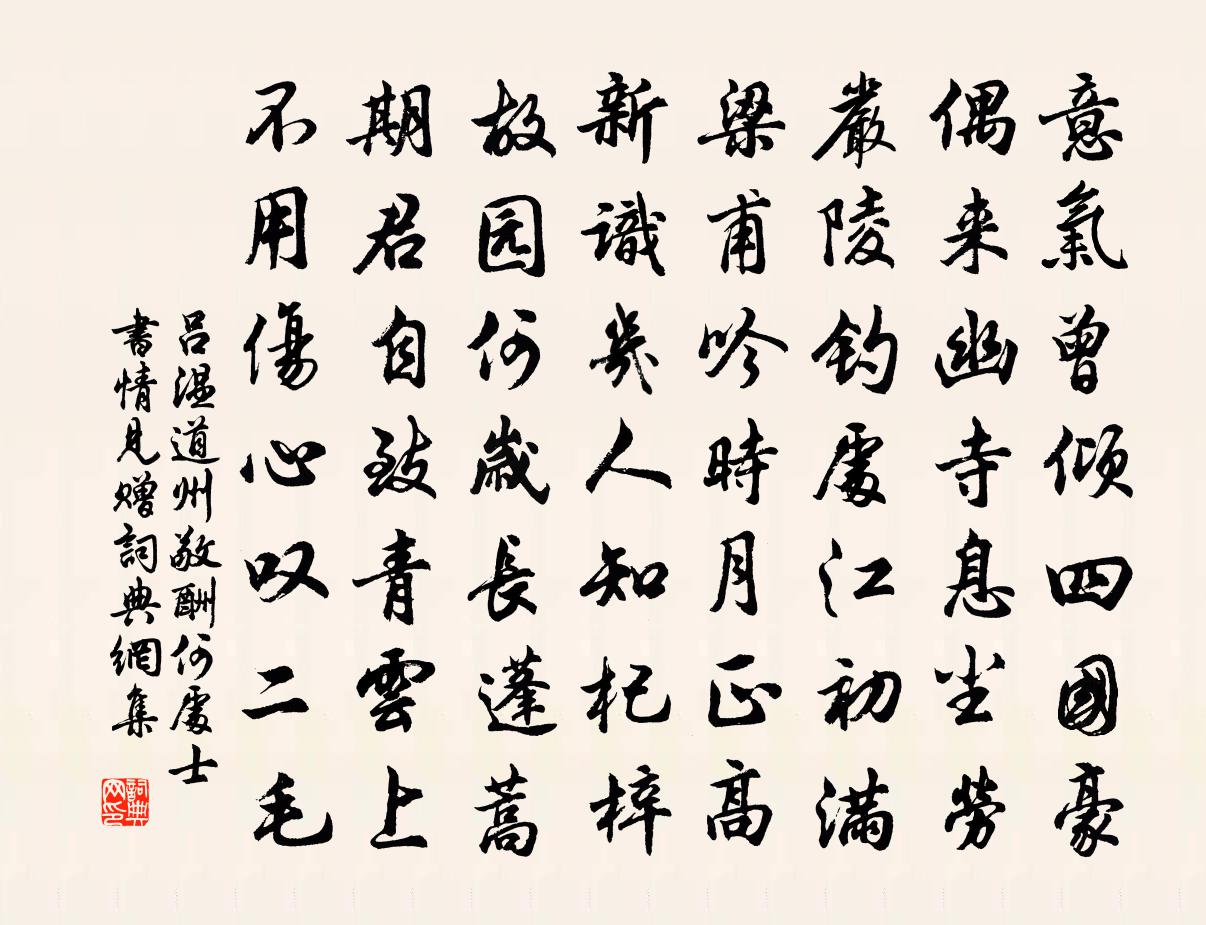 意氣曾傾四國豪
偶来幽寺息尘勞
嚴陵钓處江初滿
梁甫吟時月正高
新識幾人知杞梓
故园何歲長蓬蒿
期君自致青雲上
不用傷心叹二毛
吕溫道州敬酬何處士
書情見赠詞典網集
詞典
网印